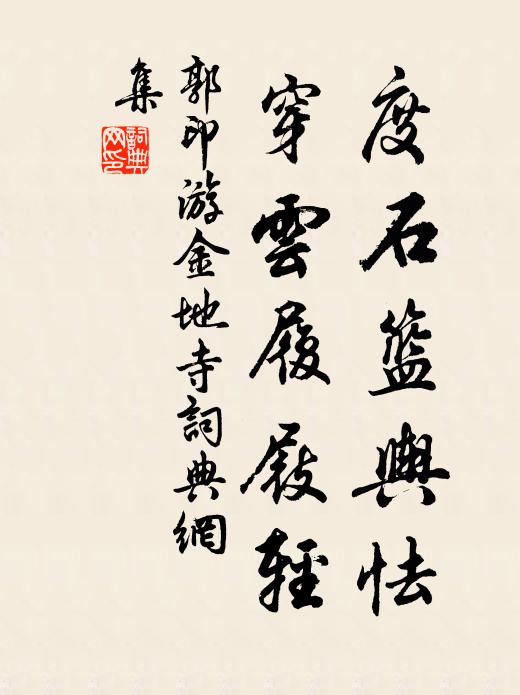 度石籃輿怯
穿雲履屐輕
郭印游金地寺詞典網
集
詞典網印